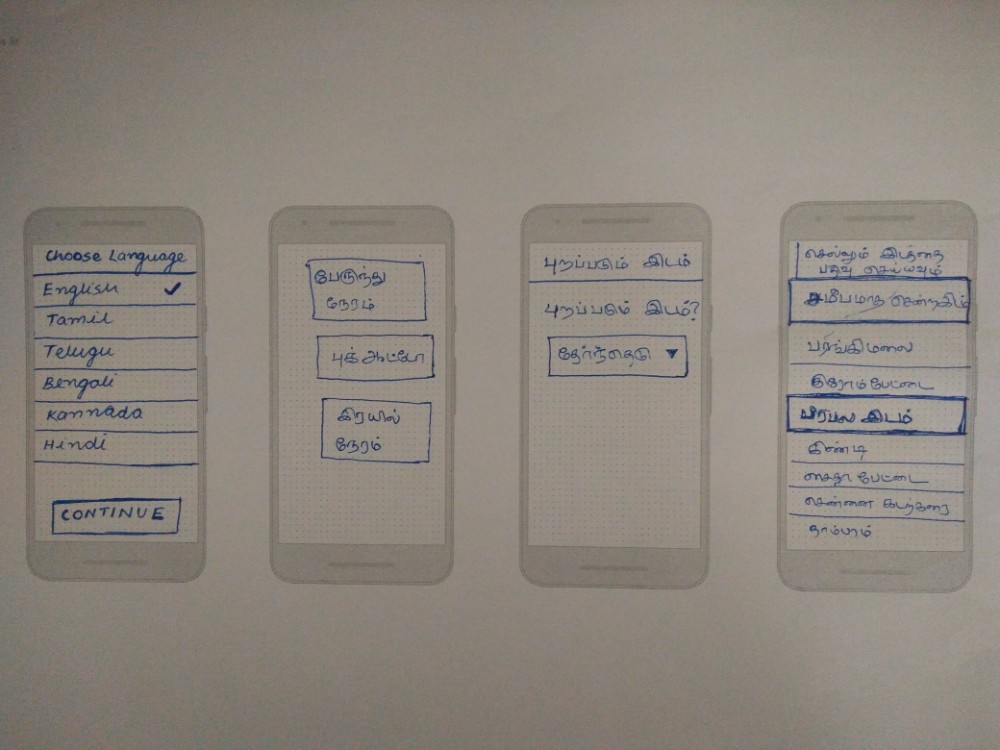 Choose Language
English ✓
Tamil
Telugu
Bengali
Kannada
Hindi
CONTINUE
பேருந்து
நேரம்
புக் ஆட்டோ
இரயில்
நேரம்
புறப்படும் இடம்
புறப்படும் இடம்?
தேர்ந்தெடு ▼
செல்லும் இடத்தை
பதிவு செய்யவும்
சமீபமாக சென்ற
பரங்கிமலை
குரோம்பேட்டை
பிரபல இடம்
கிண்டி
சைதாபேட்டை
சென்னை கடற்கரை
தாம்பரம்